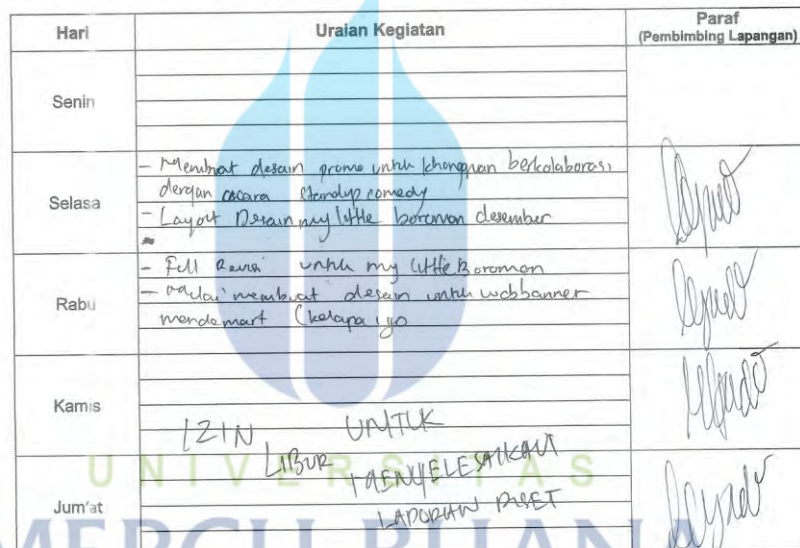 Hari Uraian Kegiatan Paraf
(Pembimbing Lapangan)
Senin
- Membuat desain promo untuk khongguan berkolaborasi
dengan acara Standup comedy
Selasa
- Layout Desain my little boromon desember
- Full Revisi untuk my little Boromon
- Mulai membuat desain untuk webbanner
Rabu
mendamart (kelapa ijo
Kamis
IZIN UNTUK
LIBUR MENYELESAIKAN
UNIVERSITAS
Jum'at
LAPORAN RISET
MERCU BUANA